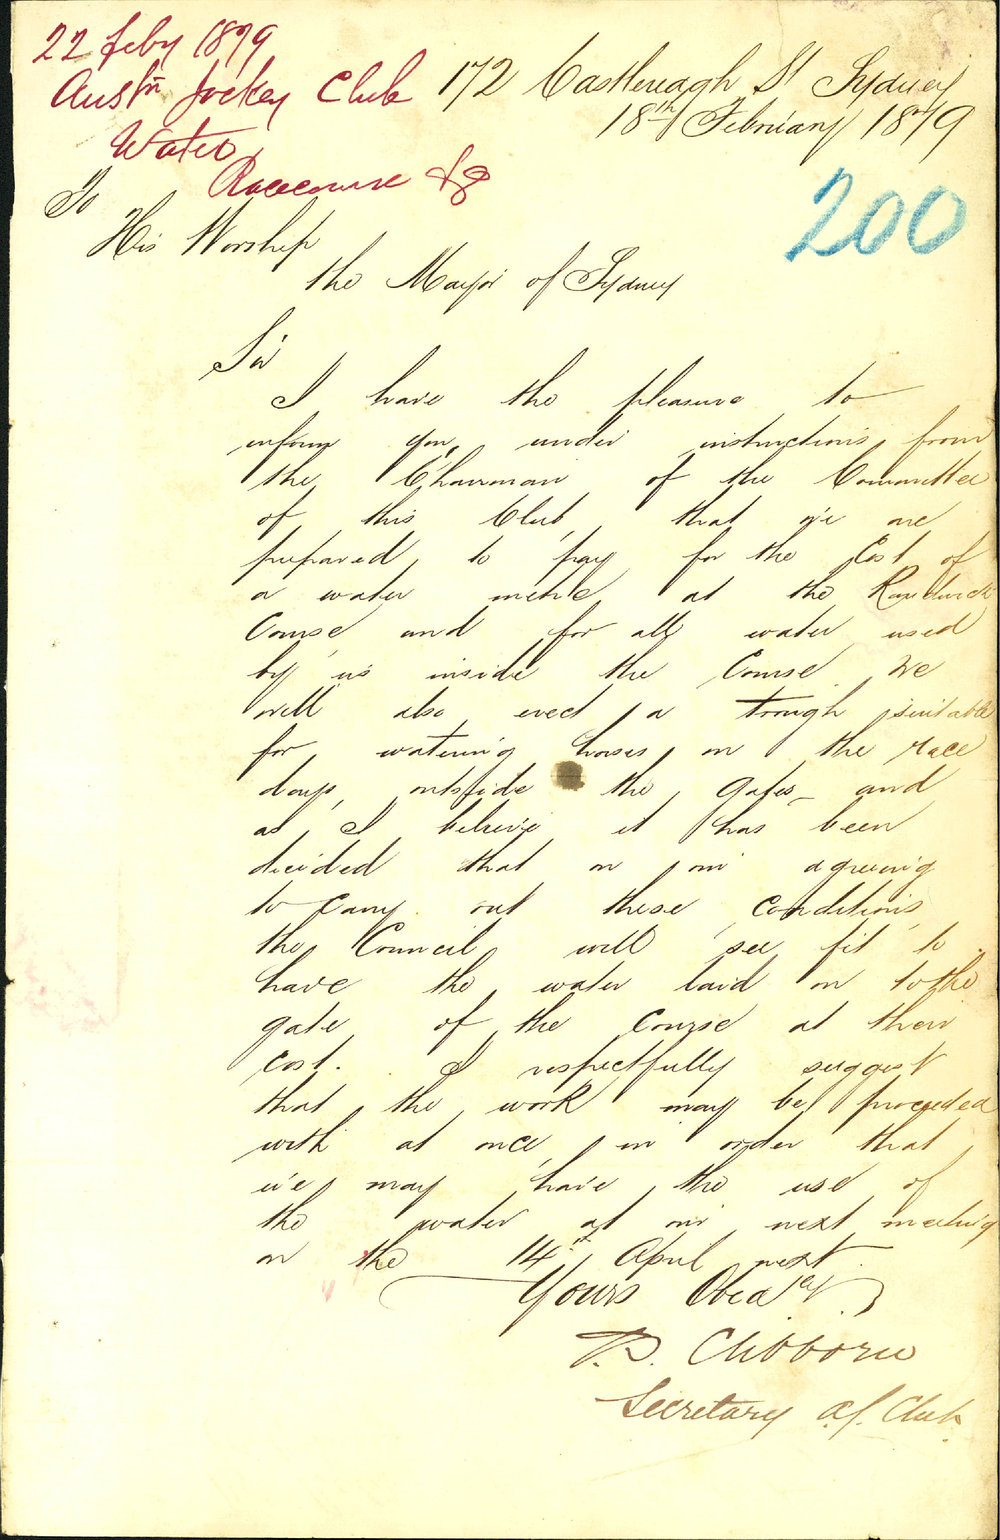 22 Feby 1879
Austn Jockey Club
Water
Racecourse &c
172 Castlereagh St Sydney
18th February 1879
200
To
His Worship
the Mayor of Sydney
Sir
I have the pleasure to
inform you, under instructions from
the Chairman of the Committee
of this Club, that we are
prepared to pay for the Cost of
a water metre at the Randwick
Course and for all water used
by us inside the Course We
will also erect a trough suitable
for watering horses on the race
days, outside the gates - and
as I believe it has been
decided that on our agreeing
to carry out these conditions
the Council will see fit to
have the water laid on to the
gate of the Course at their
cost. I respectfully suggest
that the work may be proceeded
with at once, in order that
we may have the use of
the water at our next meeting
on the 14th April next.
Yours Obedtly
T.S. Clibborn
Secretary A.J. Club.